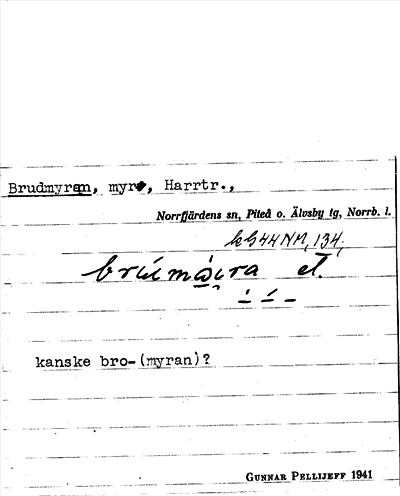 Brudmyran, myr, Harrtr.,
Norrfjärdens sn, Piteå o. Älvsby tg, Norrb. l.
44 NM, 134,
et.
kanske bro-(myran)?
GUNNAR PELLIJEFF 1941